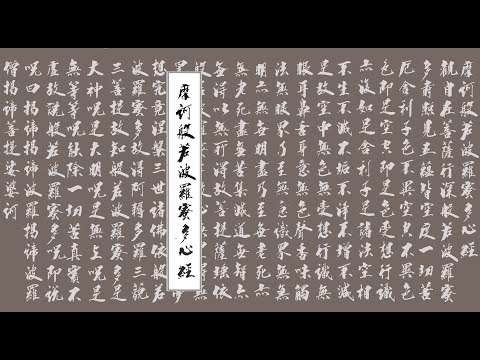 觀自在菩薩行深般若波羅蜜
多時照見五蘊皆空度一切苦
厄舍利子色不異空空不異色
色即是空空即是色受想行識
亦復如是舍利子是諸法空相
不生不滅不垢不淨不增不減
是故空中無色無受想行識無
眼耳鼻舌身意無色聲香味觸
法無眼界乃至無意識界無無
明亦無無明盡乃至無老死亦
無老死盡無苦集滅道無智亦
無得以無所得故菩提薩埵依
摩訶般若波羅蜜多心經
想究竟涅槃三世諸佛依般若
波羅蜜多故得阿耨多羅三藐
三菩提故知般若波羅蜜多是
大神呪是大明呪是無上呪是
無等等呪能除一切苦真實不
虛故說般若波羅蜜多呪即說
呪曰揭諦揭諦波羅揭諦波羅
僧揭諦菩提娑婆訶